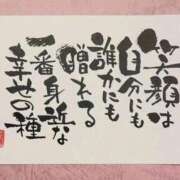 笑顔は
自分にも
誰かにも
贈れる
一番身近な
幸せの種